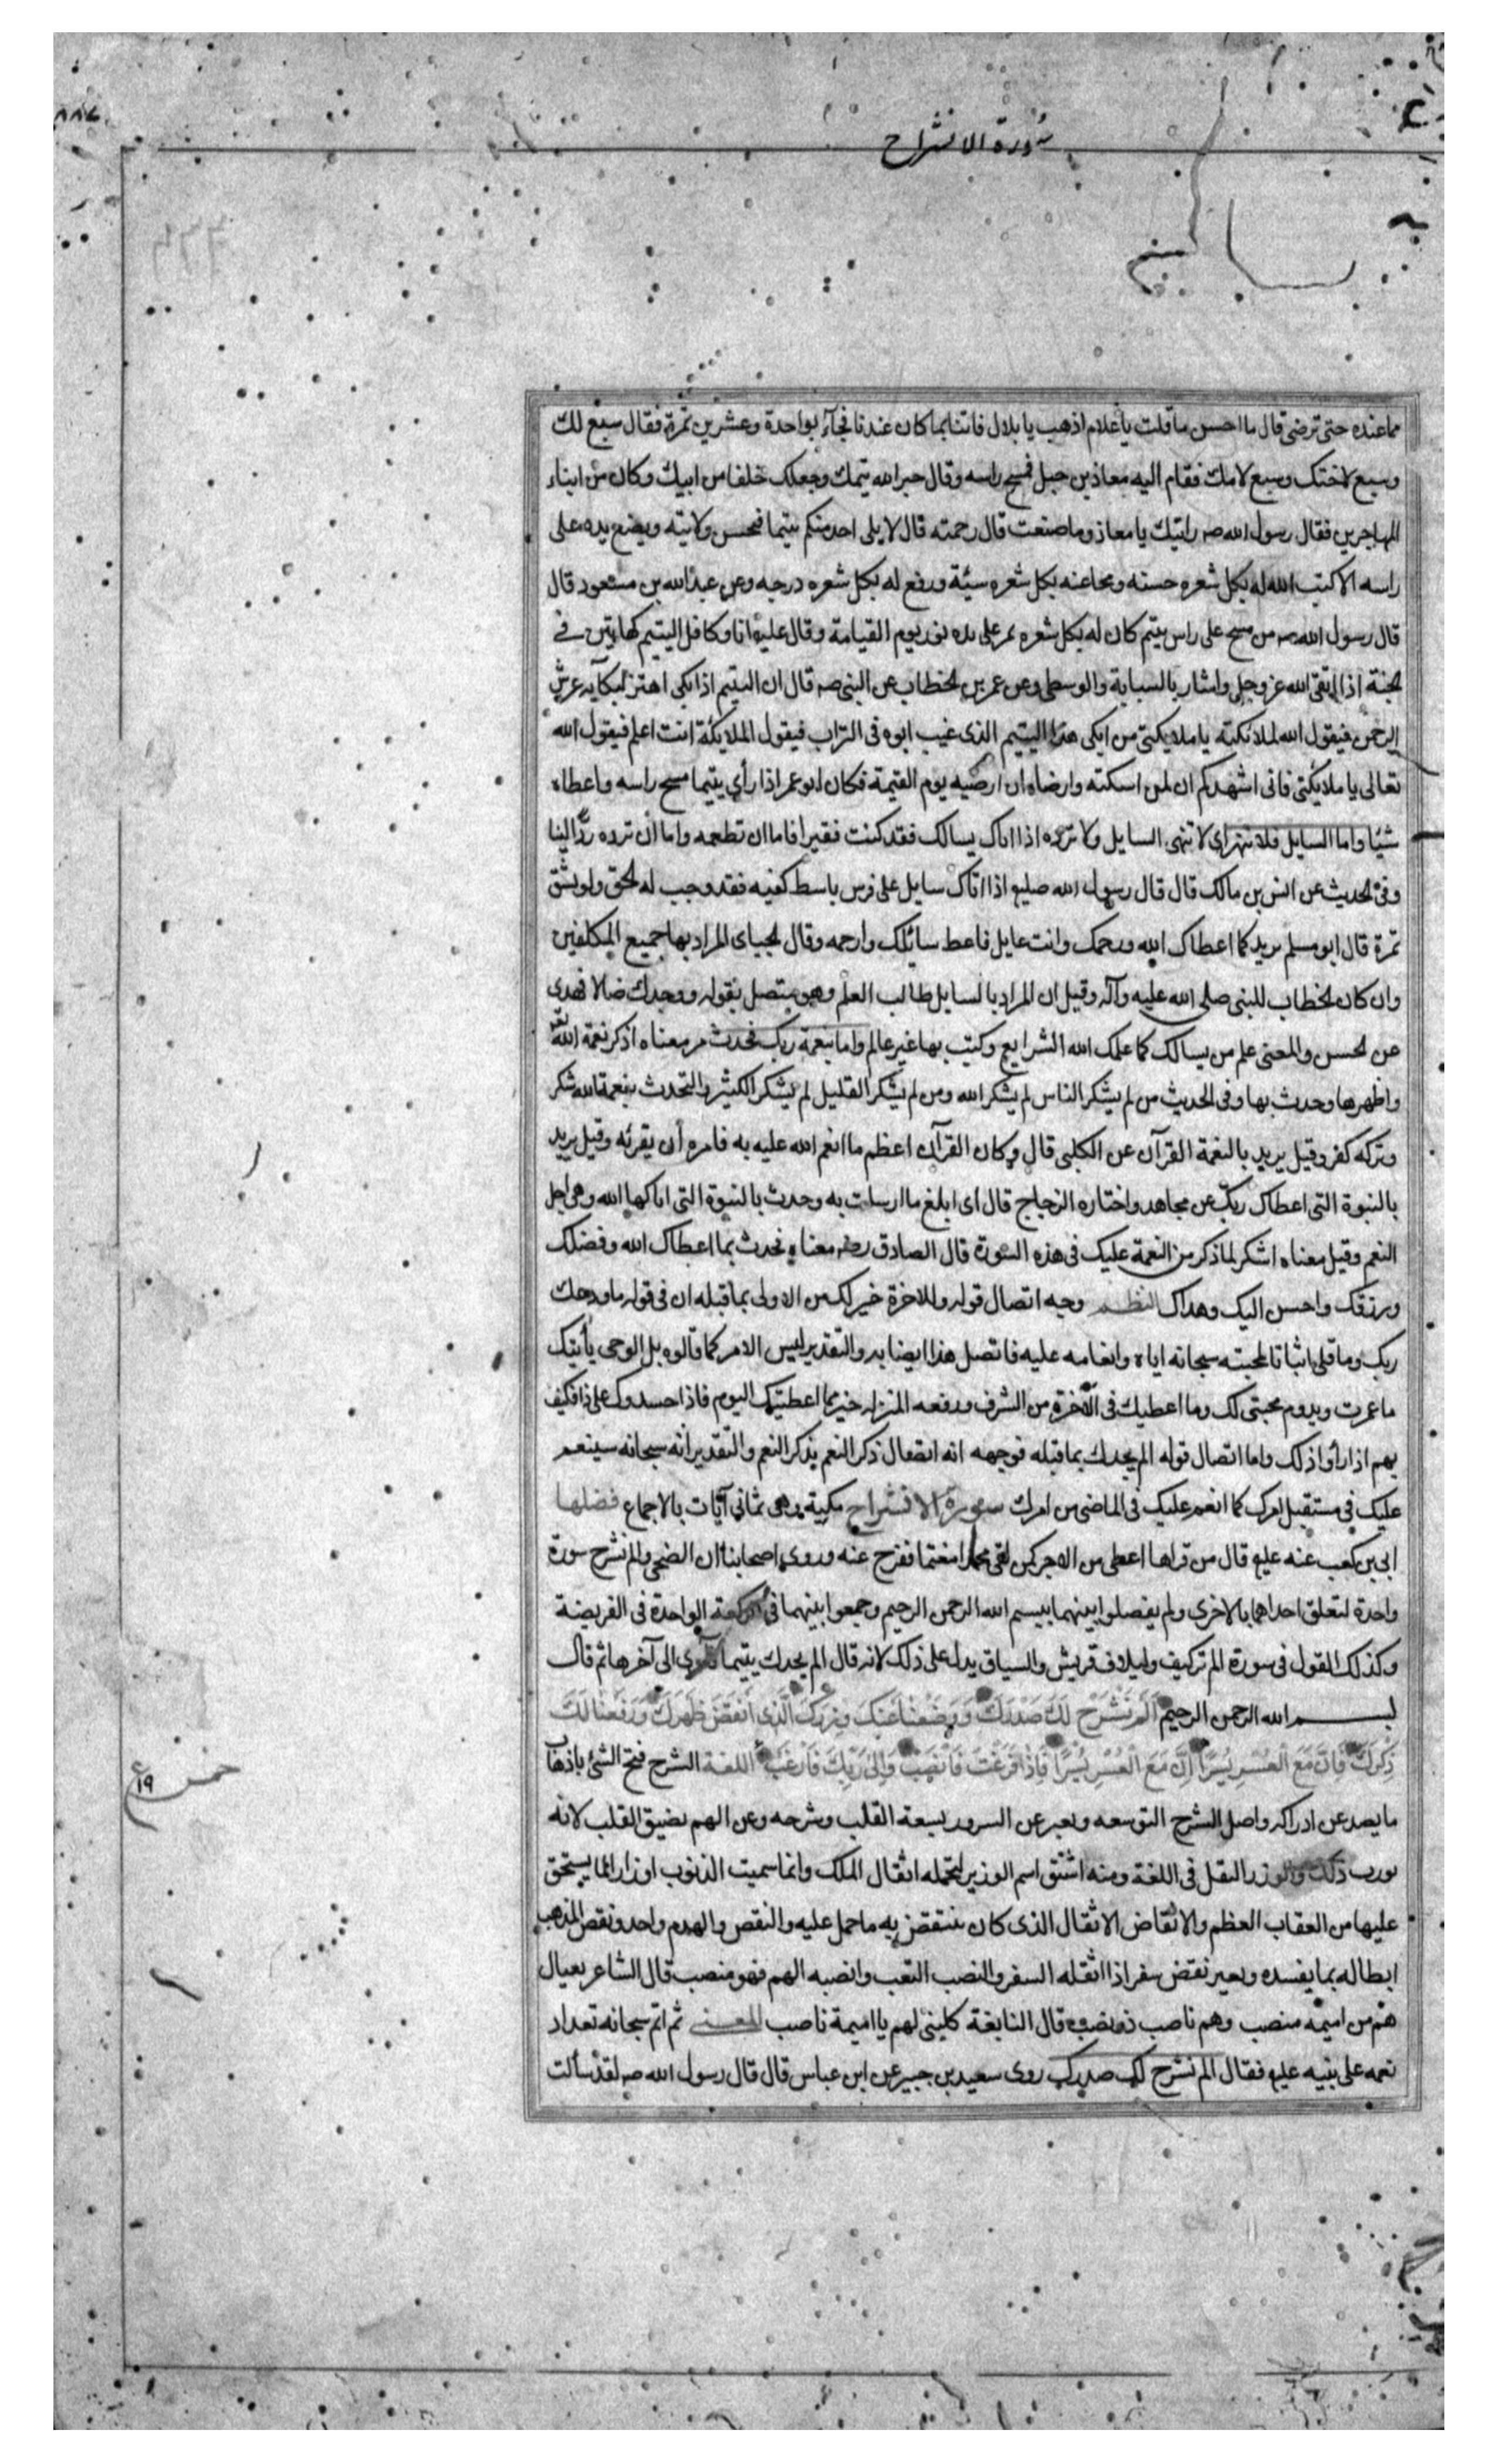 سورة الانشراح
مما عنده حتى ترضى قال ما احسن ما قلت يا غلام اذهب يا بلال فاتنا بما كان عندنا فجآء بواحدة وعشرين تمرة فقال سبع لك
وسبع لاختك وسبع لامك فقام اليه معاذ بن جبل فمسح راسه وقال جبر الله يتمك وجعلك خلفا من ابيك وكان من ابناء
المهاجرين فقال رسول الله صه رايتك يا معاذ وما صنعت قال رحمته قال لا يلى احد منكم يتيما فحسن ولايته ويضع يده على
راسه الا كتب الله له بكل شعره حسنه ومحا عنه بكل شعره سيئة ورفع له بكل شعره درجه وعن عبد الله بن مسعود قال
قال رسول الله صه من مسح على راس يتيم كان له بكل شعره تمر على يده نور يوم القيامة وقال عليه انا وكافل اليتيم كهاتين فى
الجنة اذا اتقى الله عز وجل واشار بالسبابة والوسطى وعن عمر بن الخطاب عن النبى صه قال ان اليتيم اذا بكى اهتز لبكآيه عرش
الرحمن فيقول الله لملائكته يا ملايكتى من ابكى هذا اليتيم الذى غيب ابوه فى التراب فيقول الملايكة انت اعلم فيقول الله
تعالى يا ملايكتى فانى اشهدكم ان لمن اسكته وارضاه ان ارضيه يوم القيمة فكان ابو عمر اذا رأى يتيما مسح راسه واعطاه
شيئا واما السايل فلا تنهر اى لا تنهى السايل ولا ترده اذا اتاك يسالك فقد كنت فقيرا فاما ان تطعمه واما ان ترده ردا لينا
وفى الحديث عن انس بن مالك قال قال رسول الله صليه اذا اتاك سايل على فرس باسط كفيه فقد وجب له الحق ولو بشق
تمرة قال ابو مسلم يريد كما اعطاك الله ورحمك وانت عايل فاعط سائلك وارحمه وقال الجبياى المراد بها جميع المكلفين
وان كان الخطاب للنبى صلى الله عليه وآله وقيل ان المراد بالسايل طالب العلم وهو متصل بقوله ووجدك ضالا فهدى
عن الحسن والمعنى علم من يسالك كما علمك الله الشرايع وكنت بها غير عالم واما بنعمة ربك فحدث معناه اذكر نعمة الله
واظهرها وحدث بها وفى الحديث من لم يشكر الناس لم يشكر الله ومن لم يشكر القليل لم يشكر الكثير والتحدث بنعمة الله شكر
وتركه كفر وقيل يريد بالنعمة القرآن عن الكلبى قال وكان القرآن اعظم ما انعم الله عليه به فامره أن يقرئه وقيل يريد
بالنبوة التى اعطاك ربك عن مجاهد واختاره الزجاج قال اى ابلغ ما ارسلت به وحدث بالنبوة التى اتاكها الله وهى اجل
النعم وقيل معناه اشكر لما ذكر من النعمة عليك فى هذه السورة قال الصادق معناه فحدث بما اعطاك الله وفضلك
ورزقك واحسن اليك وهداك النظم وجه اتصال قوله وللاخرة خير لك من الاولى بما قبله ان فى قوله ما ودعك
ربك وما قلى اثباتا لمحبته سبحانه اياه وانعامه عليه فاتصل هذا ايضا به والتقدير ليس الامر كما قالوه بل الوحى يأتيك
ما عمرت ويدوم محبتى لك وما اعطيك فى الآخرة من الشرف ورفعه المنزله خير مما اعطيتك اليوم فاذا حسدوك على ذا فكيف
بهم اذا راوا ذلك واما اتصال قوله الم يجدك بما قبله فوجهه انه اتصال ذكر النعم بذكر النعم والتقدير انه سبحانه سينعم
عليك فى مستقبل امرك كما انعم عليك فى الماضى من امرك سورة الانشراح مكية وهى ثمانى آيات بالاجماع فضلها
ابى بن كعب عنه عليه قال من قراها اعطى من الاجر كمن لقى محمدا مغتما ففرج عنه وروى اصحابنا ان الضحى والم نشرح سورة
واحدة لتعلق احداهما بالاخرى ولم يفصلوا بينهما ببسم الله الرحمن الرحيم وجمعوا بينهما فى الركعة الواحدة فى الفريضة
وكذلك القول فى سورة الم تر كيف ولايلاف قريش والسياق يدل على ذلك لانه قال الم يجدك يتيما فآوى الى آخرها ثم قال
بسم الله الرحمن الرحيم أَلَمْ نَشْرَحْ لَكَ صَدْرَكَ وَوَضَعْنَا عَنْكَ وِزْرَكَ الَّذِى أَنْقَضَ ظَهْرَكَ وَرَفَعْنَا لَكَ
ذِكْرَكَ فَاِنَّ مَعَ الْعُسْرِ يُسْرًا اِنَّ مَعَ الْعُسْرِ يُسْرًا فَاِذَا فَرَغْتَ فَانْصَبْ وَاِلَىٰ رَبِّكَ فَارْغَبْ اللغة الشرح فتح الشئ باذهاب
ما يصد عن ادراكه واصل الشرح التوسعه ويعبر عن السرور بسعة القلب وشرحه وعن الهم بضيق القلب لانه
يورث ذلك والوزر الثقل فى اللغة ومنه اشتق اسم الوزير لتحمله اثقال الملك وانما سميت الذنوب اوزارا لما يستحق
عليها من العقاب العظم والانقاض الاثقال الذى كان ينتقض به ما حمل عليه والنقض والهدم واحد ونقض المذهب
ابطاله بما يفسده وبعير نقض سفر اذا اثقله السفر والنصب التعب وانصبه الهم فهو منصب قال الشاعر تعناك
هم من اميمه منصب وهم ناصب ذو نصب قال النابغة كلينى لهم يا اميمة ناصب المعنى ثم اتم سبحانه تعداد
نعمه على نبيه عليه فقال الم نشرح لك صدرك روى سعيد بن جبير عن ابن عباس قال قال رسول الله صه لقد سألت
خمس
ع ١٩